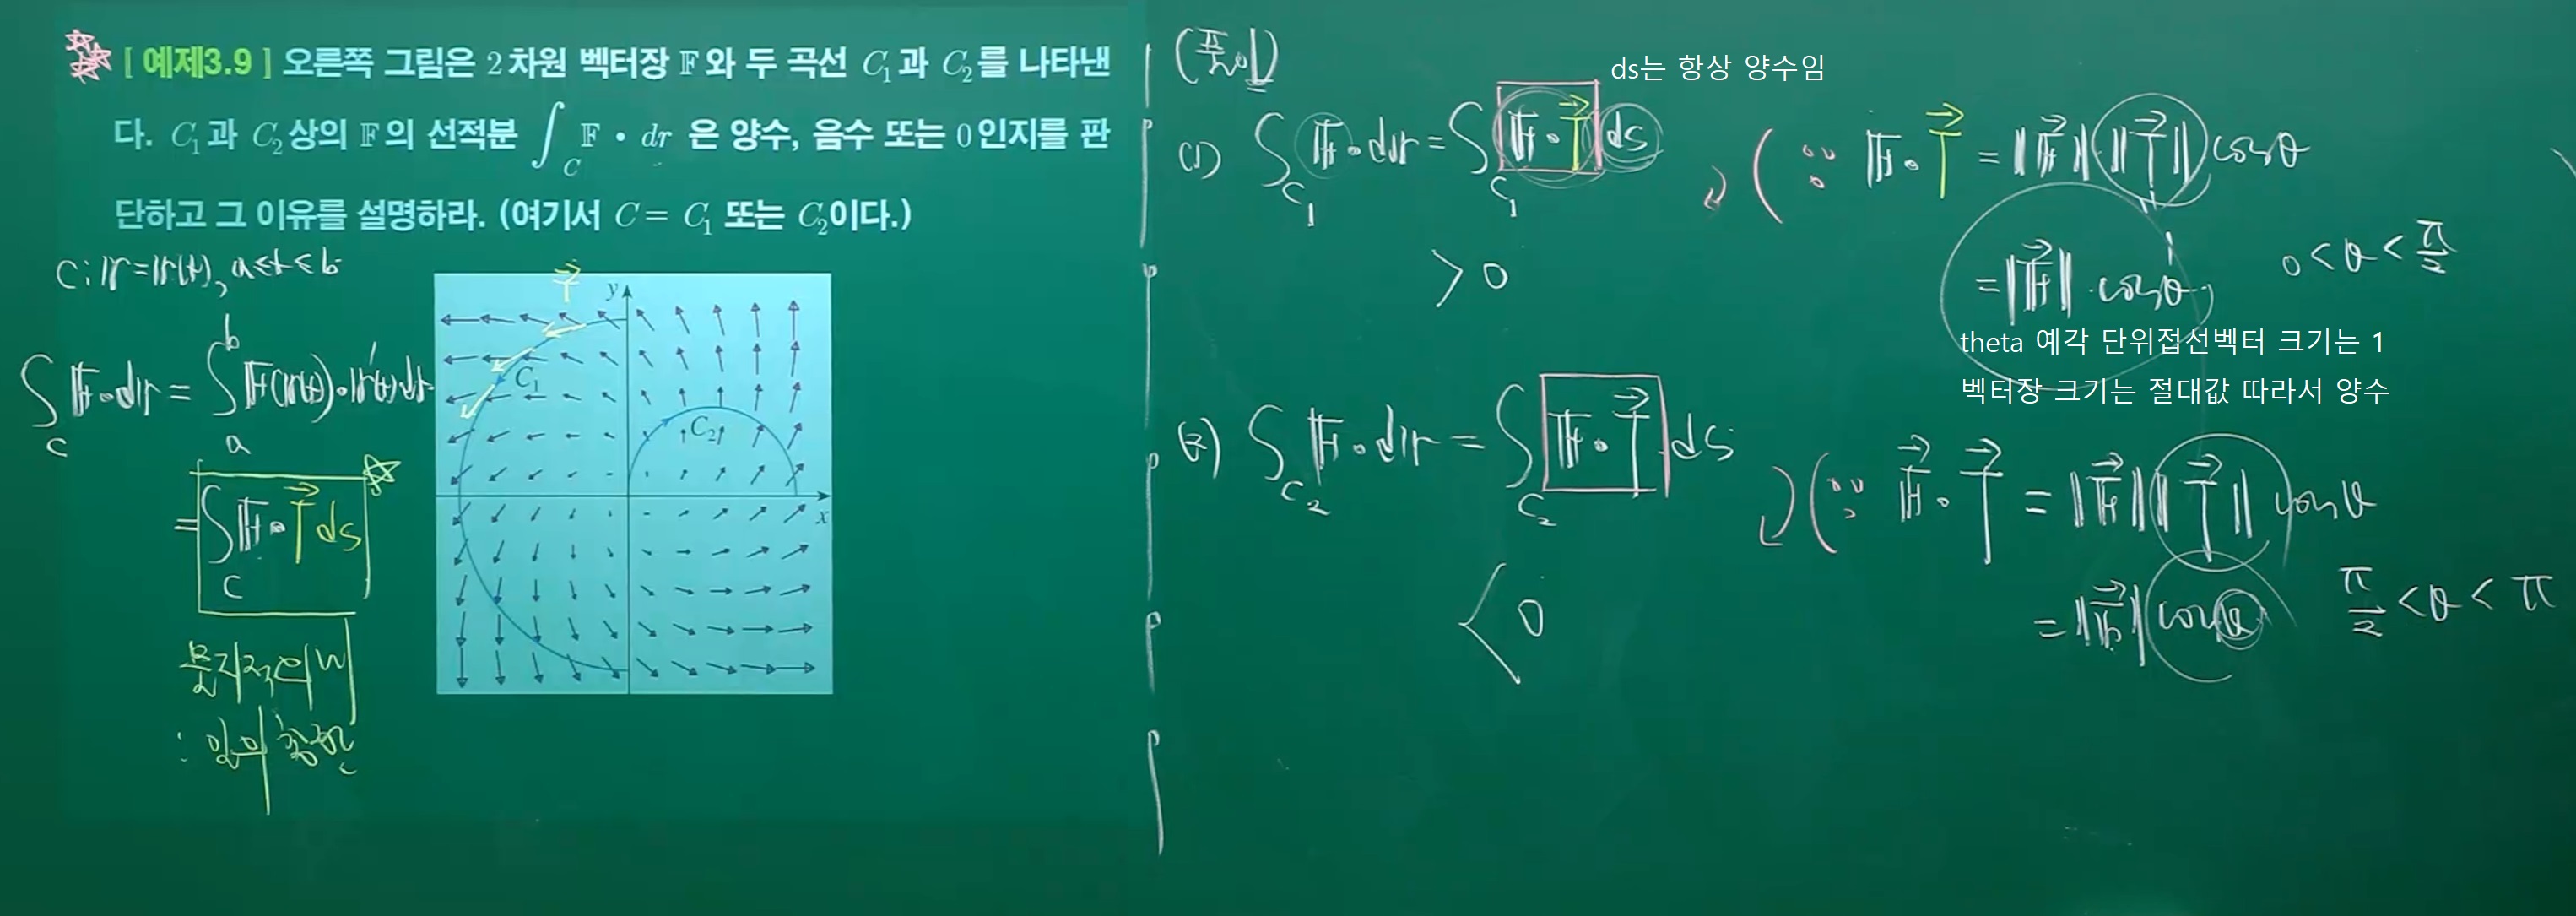 [ 예제3.9 ] 오른쪽 그림은 2차원 벡터장 𝔽와 두 곡선 C₁과 C₂를 나타낸
다. C₁과 C₂상의 𝔽의 선적분 ∫_C 𝔽 • dr 은 양수, 음수 또는 0인지를 판
단하고 그 이유를 설명하라. (여기서 C = C₁ 또는 C₂이다.)
C : r = r(t), a ≤ t ≤ b
∫_C 𝔽 • dr = ∫_a^b 𝔽(r(t)) • r'(t) dt
= ∫_C 𝔽 • T⃗ ds
물리적의미
: 일의 총량
T⃗
y
C₁
C₂
x
(풀이)
ds는 항상 양수임
(1) ∫_C₁ 𝔽 • dr = ∫_C₁ 𝔽 • T⃗ ds
> 0
(∵ 𝔽 • T⃗ = ‖F⃗‖ ‖T⃗‖ cosθ
1
= ‖F⃗‖ cosθ, 0 < θ < π/2
theta 예각 단위접선벡터 크기는 1
벡터장 크기는 절대값 따라서 양수
(2) ∫_C₂ 𝔽 • dr = ∫_C₂ 𝔽 • T⃗ ds
< 0
(∵ F⃗ • T⃗ = ‖F⃗‖ ‖T⃗‖ cosθ
= ‖F⃗‖ cosθ π/2 < θ < π